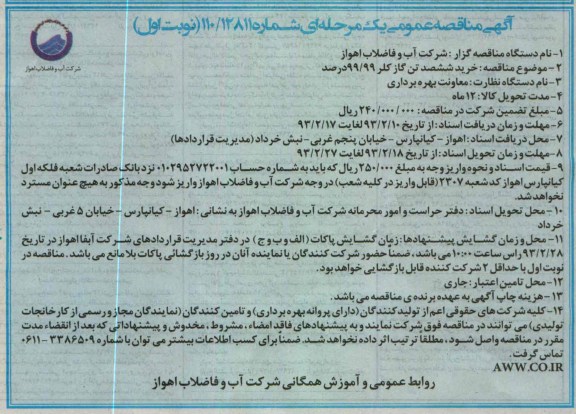 آگهی مناقصه عمومی یک مرحله‌ای شماره ۱۱۰/۱۲۸۱۱ (نوبت اول)
شرکت آب و فاضلاب اهواز
۱- نام دستگاه مناقصه گزار: شرکت آب و فاضلاب اهواز
۲- موضوع مناقصه: خرید ششصد تن گاز کلر ۹۹/۹۹ درصد
۳- نام دستگاه نظارت: معاونت بهره برداری
۴- مدت تحویل کالا: ۱۲ ماه
۵- مبلغ تضمین شرکت در مناقصه: ۲۴۰/۰۰۰/۰۰۰ ریال
۶- مهلت و زمان دریافت اسناد: از تاریخ ۹۳/۲/۱۰ لغایت ۹۳/۲/۱۷
۷- محل دریافت اسناد: اهواز - کیانپارس - خیابان پنجم غربی - نبش خرداد (مدیریت قراردادها)
۸- مهلت و زمان تحویل اسناد: از تاریخ ۹۳/۲/۱۸ لغایت ۹۳/۲/۲۷
۹- قیمت اسناد و نحوه واریز وجه به مبلغ ۲۵۰/۰۰۰ ریال که باید به شماره حساب ۰۱۰۲۹۵۲۷۲۲۰۰۱ نزد بانک صادرات شعبه فلکه اول
کیانپارس اهواز کد شعبه ۲۳۰۷ (قابل واریز در کلیه شعب) در وجه شرکت آب و فاضلاب اهواز واریز شود وجه مذکور به هیچ عنوان مسترد
نخواهد شد.
۱۰- محل تحویل اسناد: دفتر حراست و امور محرمانه شرکت آب و فاضلاب اهواز به نشانی: اهواز - کیانپارس - خیابان ۵ غربی - نبش
خرداد
۱۱- محل و زمان گشایش پیشنهادها: زمان گشایش پاکات (الف و ب و ج) در دفتر مدیریت قراردادهای شرکت آبفا اهواز در تاریخ
۹۳/۲/۲۸ راس ساعت ۱۰:۰۰ می باشد، ضمناً حضور شرکت کنندگان یا نماینده آنان در روز بازگشائی پاکات بلامانع می باشد. مناقصه در
نوبت اول با حداقل ۲ شرکت کننده قابل بازگشایی خواهد بود.
۱۲- محل تامین اعتبار: جاری
۱۳- هزینه چاپ آگهی به عهده برنده ی مناقصه می باشد.
۱۴- کلیه شرکت های حقوقی اعم از تولید کنندگان (دارای پروانه بهره برداری) و تامین کنندگان (نمایندگان مجاز و رسمی از کارخانجات
تولیدی) می توانند در مناقصه فوق شرکت نمایند و به پیشنهادهای فاقد امضاء، مشروط، مخدوش و پیشنهاداتی که بعد از انقضاء مدت
مقرر در مناقصه واصل شود، مطلقا ترتیب اثر داده نخواهد شد. ضمناً برای کسب اطلاعات بیشتر می توان با شماره ۳۳۸۶۵۰۹-۰۶۱۱
تماس گرفت.
AWW.CO.IR
روابط عمومی و آموزش همگانی شرکت آب و فاضلاب اهواز